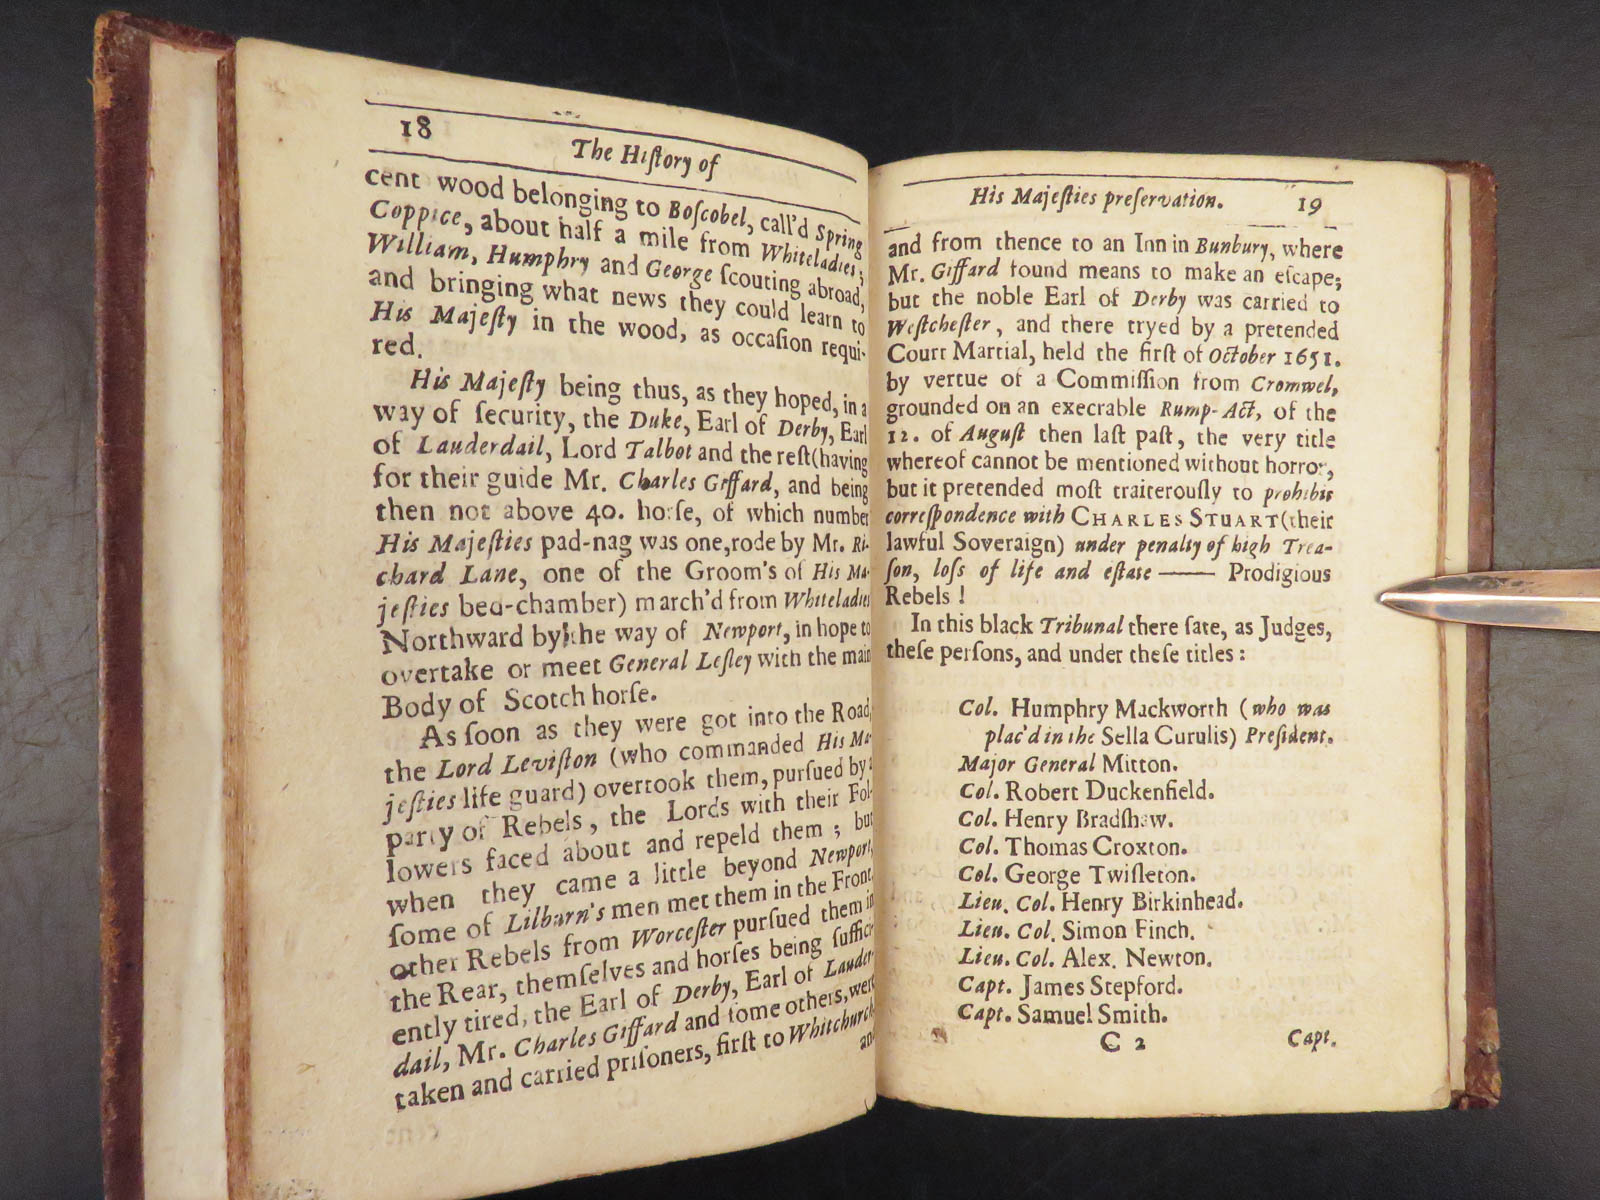 18
The Hiſtory of
cent wood belonging to Boſcobel, call'd Spring
Coppice, about half a mile from Whiteladies;
William, Humphry and George ſcouting abroad,
and bringing what news they could learn to
His Majeſty in the wood, as occaſion requi-
red.
His Majeſty being thus, as they hoped, in a
way of ſecurity, the Duke, Earl of Derby, Earl
of Lauderdail, Lord Talbot and the reſt (having
for their guide Mr. Charles Giffard, and being
then not above 40. horſe, of which number
His Majeſties pad-nag was one, rode by Mr. Ri-
chard Lane, one of the Groom's of His Ma-
jeſties bed-chamber) march'd from Whiteladies
Northward by the way of Newport, in hope to
overtake or meet General Leſley with the main
Body of Scotch horſe.
As ſoon as they were got into the Road,
the Lord Leviſton (who commanded His Ma-
jeſties life guard) overtook them, purſued by a
party of Rebels, the Lords with their Fol-
lowers faced about and repeld them; but
when they came a little beyond Newport,
ſome of Lilburn's men met them in the Front,
other Rebels from Worceſter purſued them in
the Rear, themſelves and horſes being ſuffici-
ently tired, the Earl of Derby, Earl of Lauder-
dail, Mr. Charles Giffard and ſome others, were
taken and carried priſoners, firſt to Whitchurch
and
His Majeſties preſervation. 19
and from thence to an Inn in Bunbury, where
Mr. Giffard found means to make an eſcape;
but the noble Earl of Derby was carried to
Weſtcheſter, and there tryed by a pretended
Court Martial, held the firſt of October 1651.
by vertue of a Commiſſion from Cromwel,
grounded on an execrable Rump-Act, of the
12. of Auguſt then laſt paſt, the very title
whereof cannot be mentioned without horror,
but it pretended moſt traiterouſly to prohibit
correſpondence with CHARLES STUART (their
lawful Soveraign) under penalty of high Trea-
ſon, loſs of life and eſtate —— Prodigious
Rebels !
In this black Tribunal there ſate, as Judges,
theſe perſons, and under theſe titles :
Col. Humphry Mackworth (who was
plac'd in the Sella Curulis) Preſident.
Major General Mitton.
Col. Robert Duckenfield.
Col. Henry Bradſhaw.
Col. Thomas Croxton.
Col. George Twiſleton.
Lieu. Col. Henry Birkinhead.
Lieu. Col. Simon Finch.
Lieu. Col. Alex. Newton.
Capt. James Stepford.
Capt. Samuel Smith.
C 2 Capt.